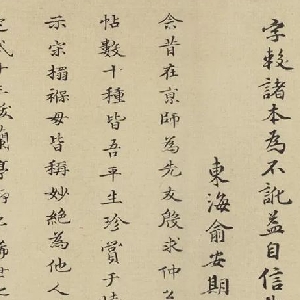 字較諸本為不訛益自信
東海俞安期
昔在京師為先友殷求仲
帖數十種皆吾平生珍賞于
示宗搨毋皆稱妙絕為他人
蘭亭